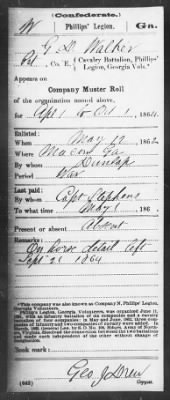 (Confederate.)
W | Phillips' Legion. | Ga.
G D Walker
Pvt, Co. E, { Cavalry Battalion, Phillips' Legion, Georgia Vols.*
Appears on
Company Muster Roll
of the organization named above,
for Apl 1 to Oct 1, 1864.
Enlisted:
When May 12, 1862
Where Macon Ga
By whom Dunlap
Period War
Last paid:
By whom Capt Stephens
To what time May 1, 186
Present or absent Absent
Remarks:
On horse detail Aft
Sept 21 1864
*This company was also known as Company N, Phillips' Legion,
Georgia Volunteers.
Book mark:
Geo. J. Drew
(642) Copyist.